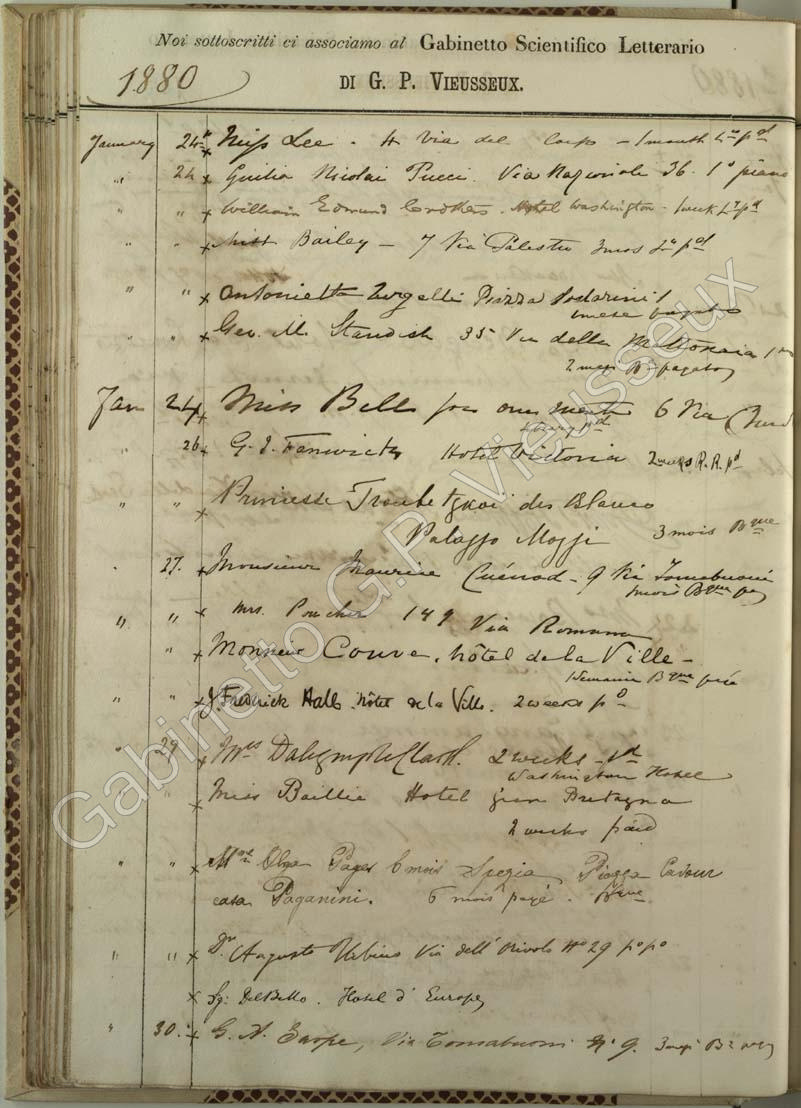 Noi sottoscritti ci associamo al Gabinetto Scientifico Letterario
1880
DI G. P. VIEUSSEUX.
January 24 x Miss Lee. 4 Via del Corso - 1 month pd
" 24 x Giulia Nicolai Pucci. Via Nazionale 36. 1° piano
" " x William Edmund Hotel Washington - 1 week pd
" " x Miss Bailey - 7 Via Palestro 3 mos pd
" " x Antonietta Piazza Soderini 1
" " x Geo. M. Standish 35 Via della
2 mesi
Jan 24 x Miss Bell for one month 6 Via
" 26 x G. J. Fenwick Hotel Victoria 2 weeks R. R. pd
" " x Princesse Troubetzkoi des Blanco
Palazzo Mozzi 3 mois Bque
" 27. x Monsieur Maurice Cuénod - 9 Via Tornabuoni
" " x Mrs. Poucher 149 Via Romana
" " x Monsieur Couve. hôtel de la Ville -
1 semaine Bque
" " x J. Fredrick Hall. hôtel de la Ville. 2 weeks pd
" 29 x Mrs Dalrymple Clark. 2 weeks - pd
Washington Hotel
" " x Miss Baillie Hotel gran Bretagna
2 weeks paid
" " x Mme Olga Pages 6 mois Spezia Piazza Cavour
casa Paganini. 6 mois payé. Bque
" " x Dr Augusto Via dell' Orivolo No 29 po po
x Sg: DelBello. Hotel d' Europe
" 30. x G. A. Via Tornabuoni No 9. 3 mesi
Gabinetto G.P. Vieusseux